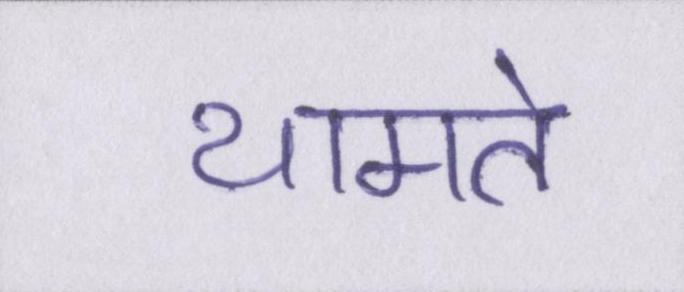 थामते